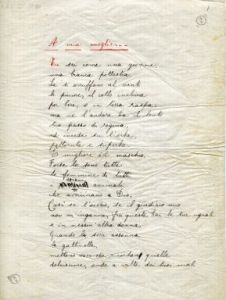 A mia moglie
Tu sei come una giovane,
una bianca pollastra.
Le si arruffano al vento
le piume, il collo china
per bere, e in terra raspa;
ma ha il lento
passo di regina,
ed incede sull'erba
pettoruta e superba.
È migliore del maschio.
tutte
le femmine di tutti
i sereni animali
che avvicinano a Dio,
Così se l'occhio, se il giudizio mio
non m'inganna, fra queste hai le tue uguali
e in nessun'altra donna.
Quando la sera assonna
le gallinelle,
mettono voci che ricordan quelle,
dolcissime, onde a volte dei tuoi mali